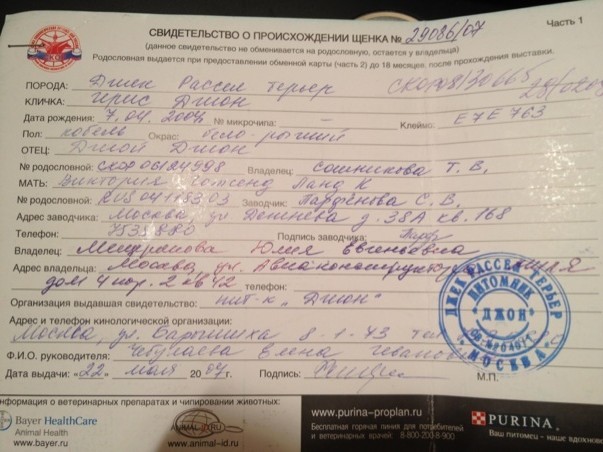 Часть 1
СВИДЕТЕЛЬСТВО О ПРОИСХОЖДЕНИИ ЩЕНКА № 29086/07
(данное свидетельство не обменивается на родословную, остается у владельца)
Родословная выдается при предоставлении обменной карты (часть 2) до 18 месяцев, после прохождения выставки.
ПОРОДА: Джек Рассел терьер
КЛИЧКА: Ирис Джон
Дата рождения: 7.04.2007 № микрочипа: – Клеймо: Е7Е 763
Пол: кобель Окрас: бело-рыжий
ОТЕЦ: Джой Джон
№ родословной: Владелец: Сошникова Т. В.
МАТЬ: Виктория Ланд К
№ родословной: Заводчик: Парфёнова С. В.
Адрес заводчика: Москва, ул Демнева д. 38А кв. 168
Телефон: 7535880 Подпись заводчика:
Владелец: Юлия Евгеньевна
Адрес владельца: Москва, ул. Авиаконструктора
дом 4 кор. 2 кв 42 телефон:
Организация выдавшая свидетельство: пит-к "Джон"
Адрес и телефон кинологической организации:
Москва ул. 8-1-43 тел
Ф.И.О. руководителя: Елена Ивановна
Дата выдачи: "22" мая 2007 г. Подпись: М.П.
ДЖЕК РАССЕЛ ТЕРЬЕР
ПИТОМНИК
"ДЖОН"
МОСКВА
нформация о ветеринарных препаратах и чипировании животных:
Bayer HealthCare
Animal Health
www.bayer.ru
ANIMAL-ID.RU
www.animal-id.ru
www.purina-proplan.ru
Бесплатная горячая линия для потребителей
и ветеринарных врачей: 8-800-200-8-900
PURINA
Ваш питомец - наше вдохнове